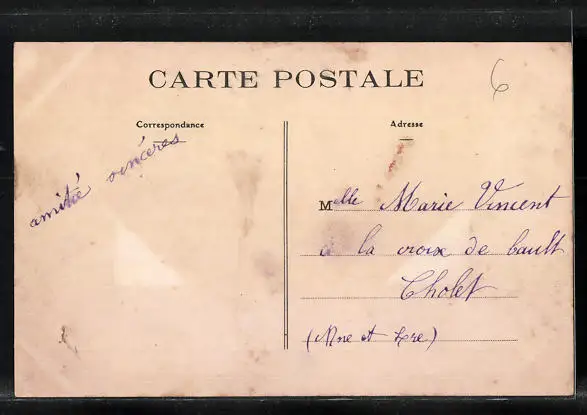 CARTE POSTALE
6
Correspondance
Adresse
amitié sincères
Melle Marie Vincent
à la croix de bault
Cholet
(Mne et Lre)